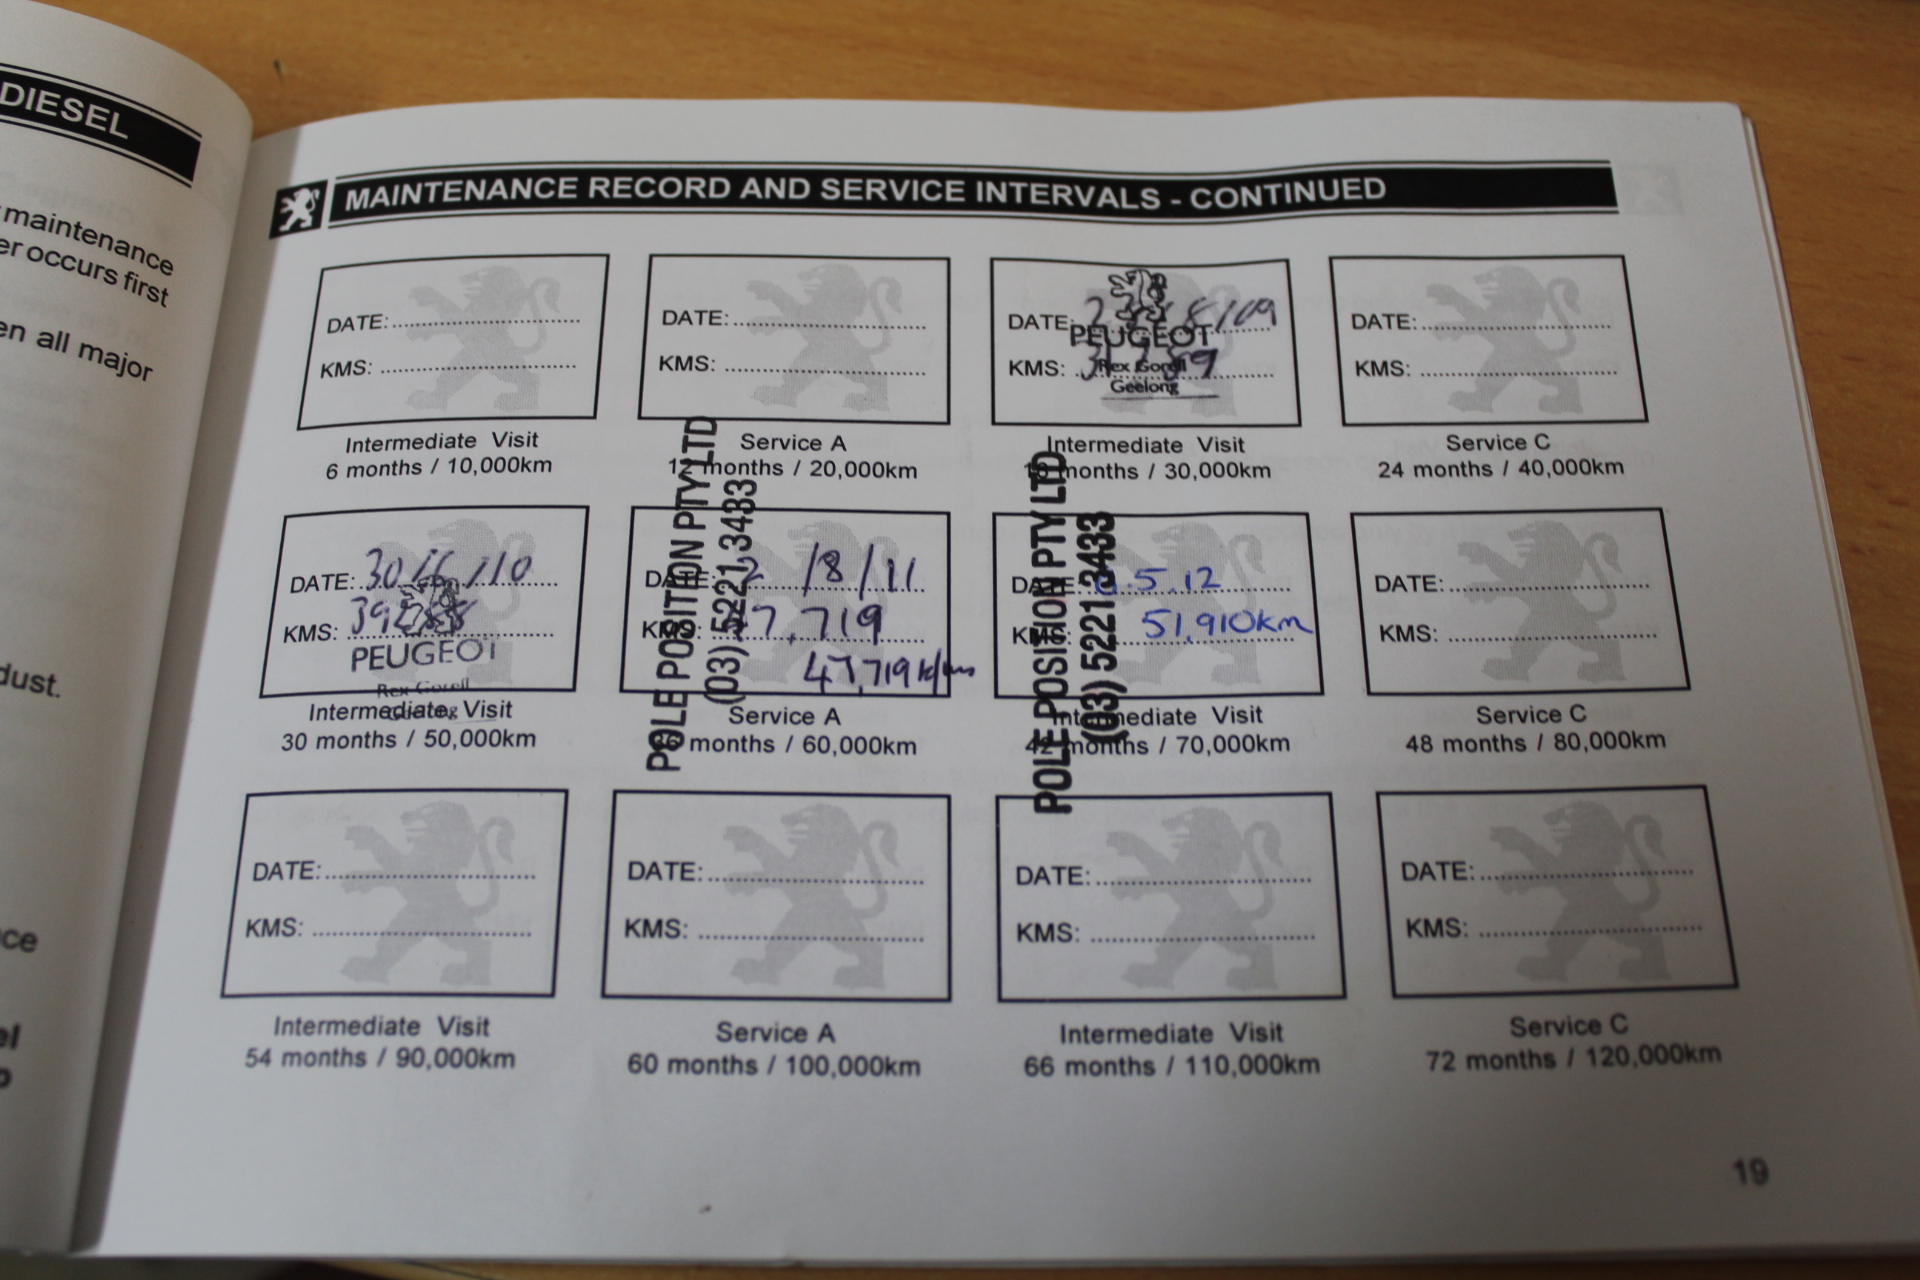 DIESEL
maintenance
er occurs first
en all major
dust.
MAINTENANCE RECORD AND SERVICE INTERVALS - CONTINUED
DATE:
KMS:
Intermediate Visit
6 months / 10,000km
DATE:
KMS:
Service A
12 months / 20,000km
DATE: 8/09
KMS:
PEUGEOT
Rex Gorell
Geelong
Intermediate Visit
18 months / 30,000km
DATE:
KMS:
Service C
24 months / 40,000km
DATE: /10
KMS:
PEUGEOT
Rex Gorell
Geelong
Intermediate Visit
30 months / 50,000km
DATE: 2 /8/11
KMS: 47,719
47,719 k/ms
POLE POSITION PTY LTD
(03) 5221 3433
Service A
36 months / 60,000km
DATE: .5.12
KMS: 51,910km
POLE POSITION PTY LTD
(03) 5221 3433
Intermediate Visit
42 months / 70,000km
DATE:
KMS:
Service C
48 months / 80,000km
DATE:
KMS:
Intermediate Visit
54 months / 90,000km
DATE:
KMS:
Service A
60 months / 100,000km
DATE:
KMS:
Intermediate Visit
66 months / 110,000km
DATE:
KMS:
Service C
72 months / 120,000km
19